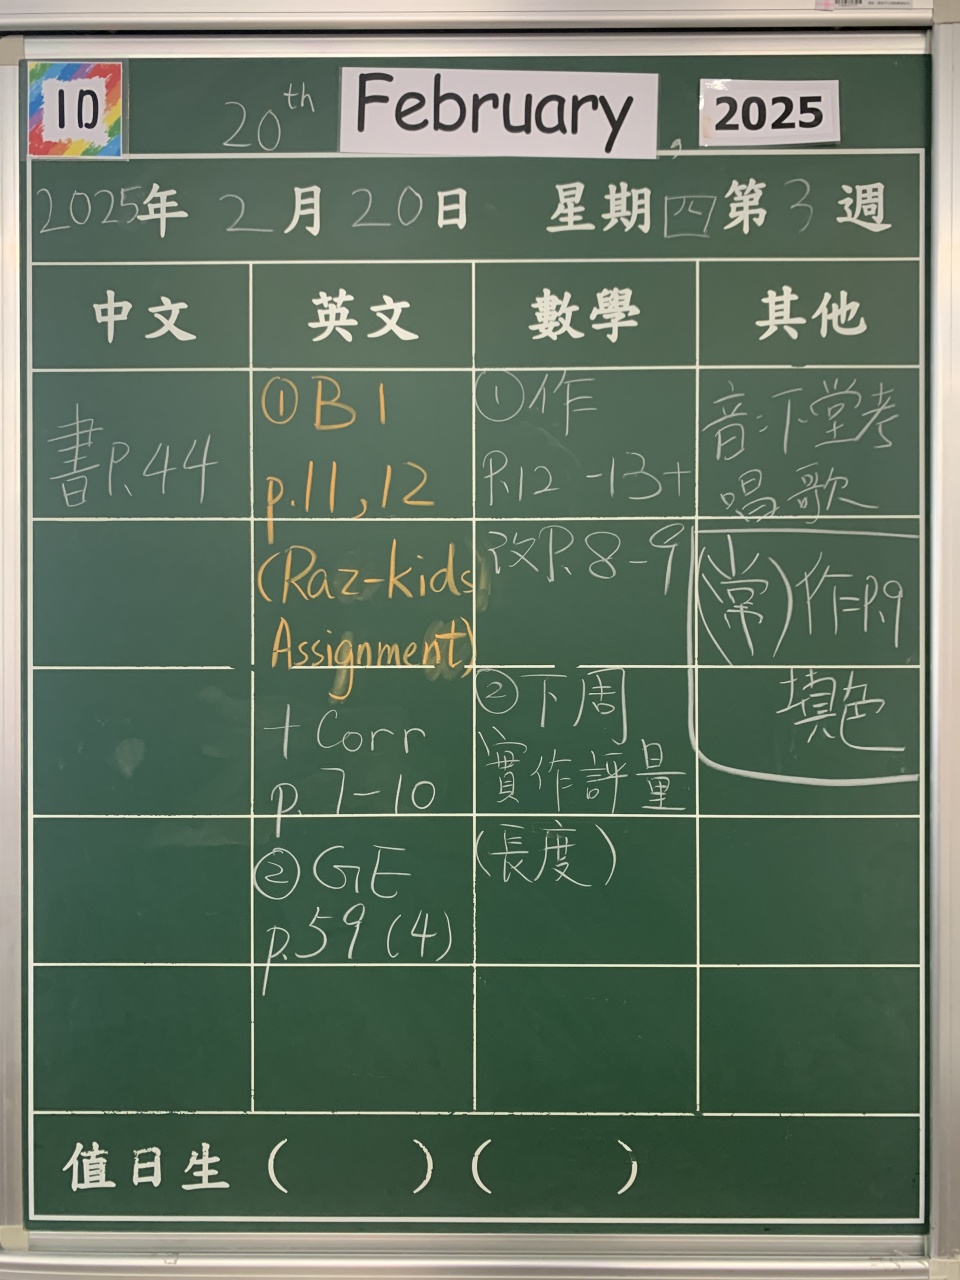 1D
20th February, 2025
2025年 2月20日 星期四第3週
中文
英文
數學
其他
書P.44
①B1
p.11,12
(Raz-kids
Assignment)
+Corr
p.7-10
②GE
p.59(4)
①作
P.12-13+
改P.8-9
②下周
實作評量
(長度)
音:下堂考
唱歌
(常)作P.9
填色
值日生( )( )